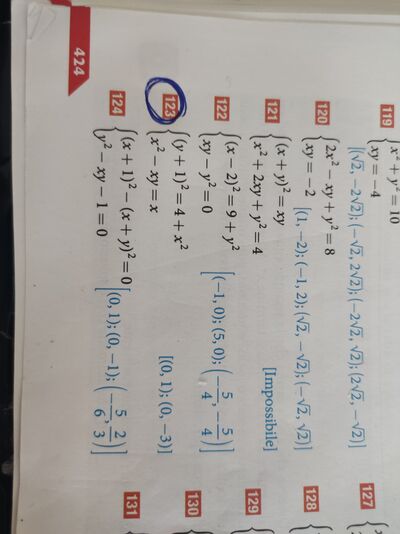 119 x² + y² = 10
xy = −4
[(√2, −2√2); (−√2, 2√2); (−2√2, √2); (2√2, −√2)]
120 2x² − xy + y² = 8
xy = −2 [(1, −2); (−1, 2); (√2, −√2); (−√2, √2)]
121 (x + y)² = xy
x² + 2xy + y² = 4 [Impossibile]
122 (x − 2)² = 9 + y²
xy − y² = 0 [(−1, 0); (5, 0); (−5/4, −5/4)]
123 (y + 1)² = 4 + x²
x² − xy = x [(0, 1); (0, −3)]
124 (x + 1)² − (x + y)² = 0
y² − xy − 1 = 0 [(0, 1); (0, −1); (−5/6, 2/3)]
424
127
128
129
130
131